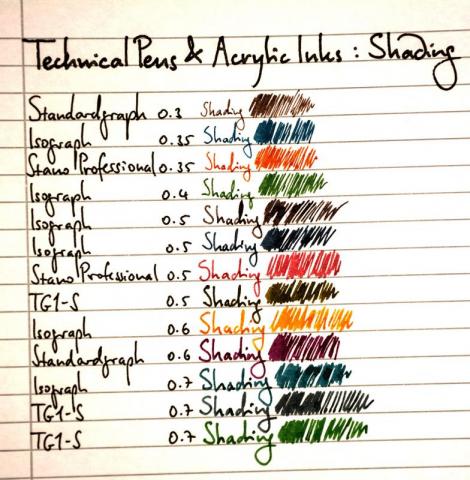 Technical Pens & Acrylic Inks : Shading
Standardgraph 0.3 Shading
Isograph 0.35 Shading
Stano Professional 0.35 Shading
Isograph 0.4 Shading
Isograph 0.5 Shading
Isograph 0.5 Shading
Stano Professional 0.5 Shading
TG1-S 0.5 Shading
Isograph 0.6 Shading
Standardgraph 0.6 Shading
Isograph 0.7 Shading
TG1-S 0.7 Shading
TG1-S 0.7 Shading